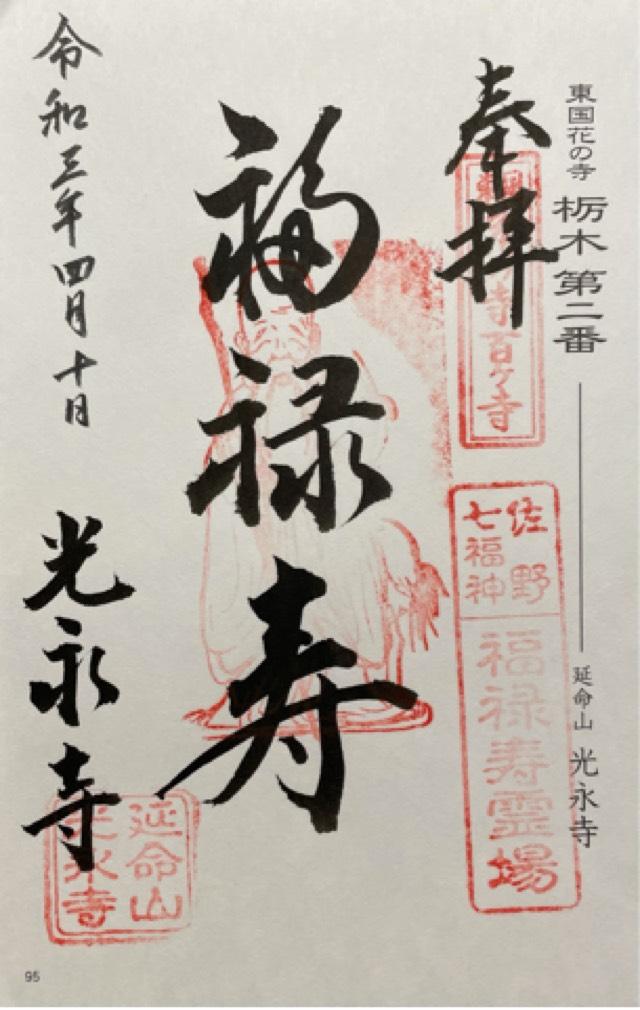 東国花の寺 栃木第二番 延命山 光永寺
奉拝
寺百ヶ寺
佐野
七福神
福禄寿霊場
福禄寿
令和三年四月十日
光永寺
延命山
光永寺
95